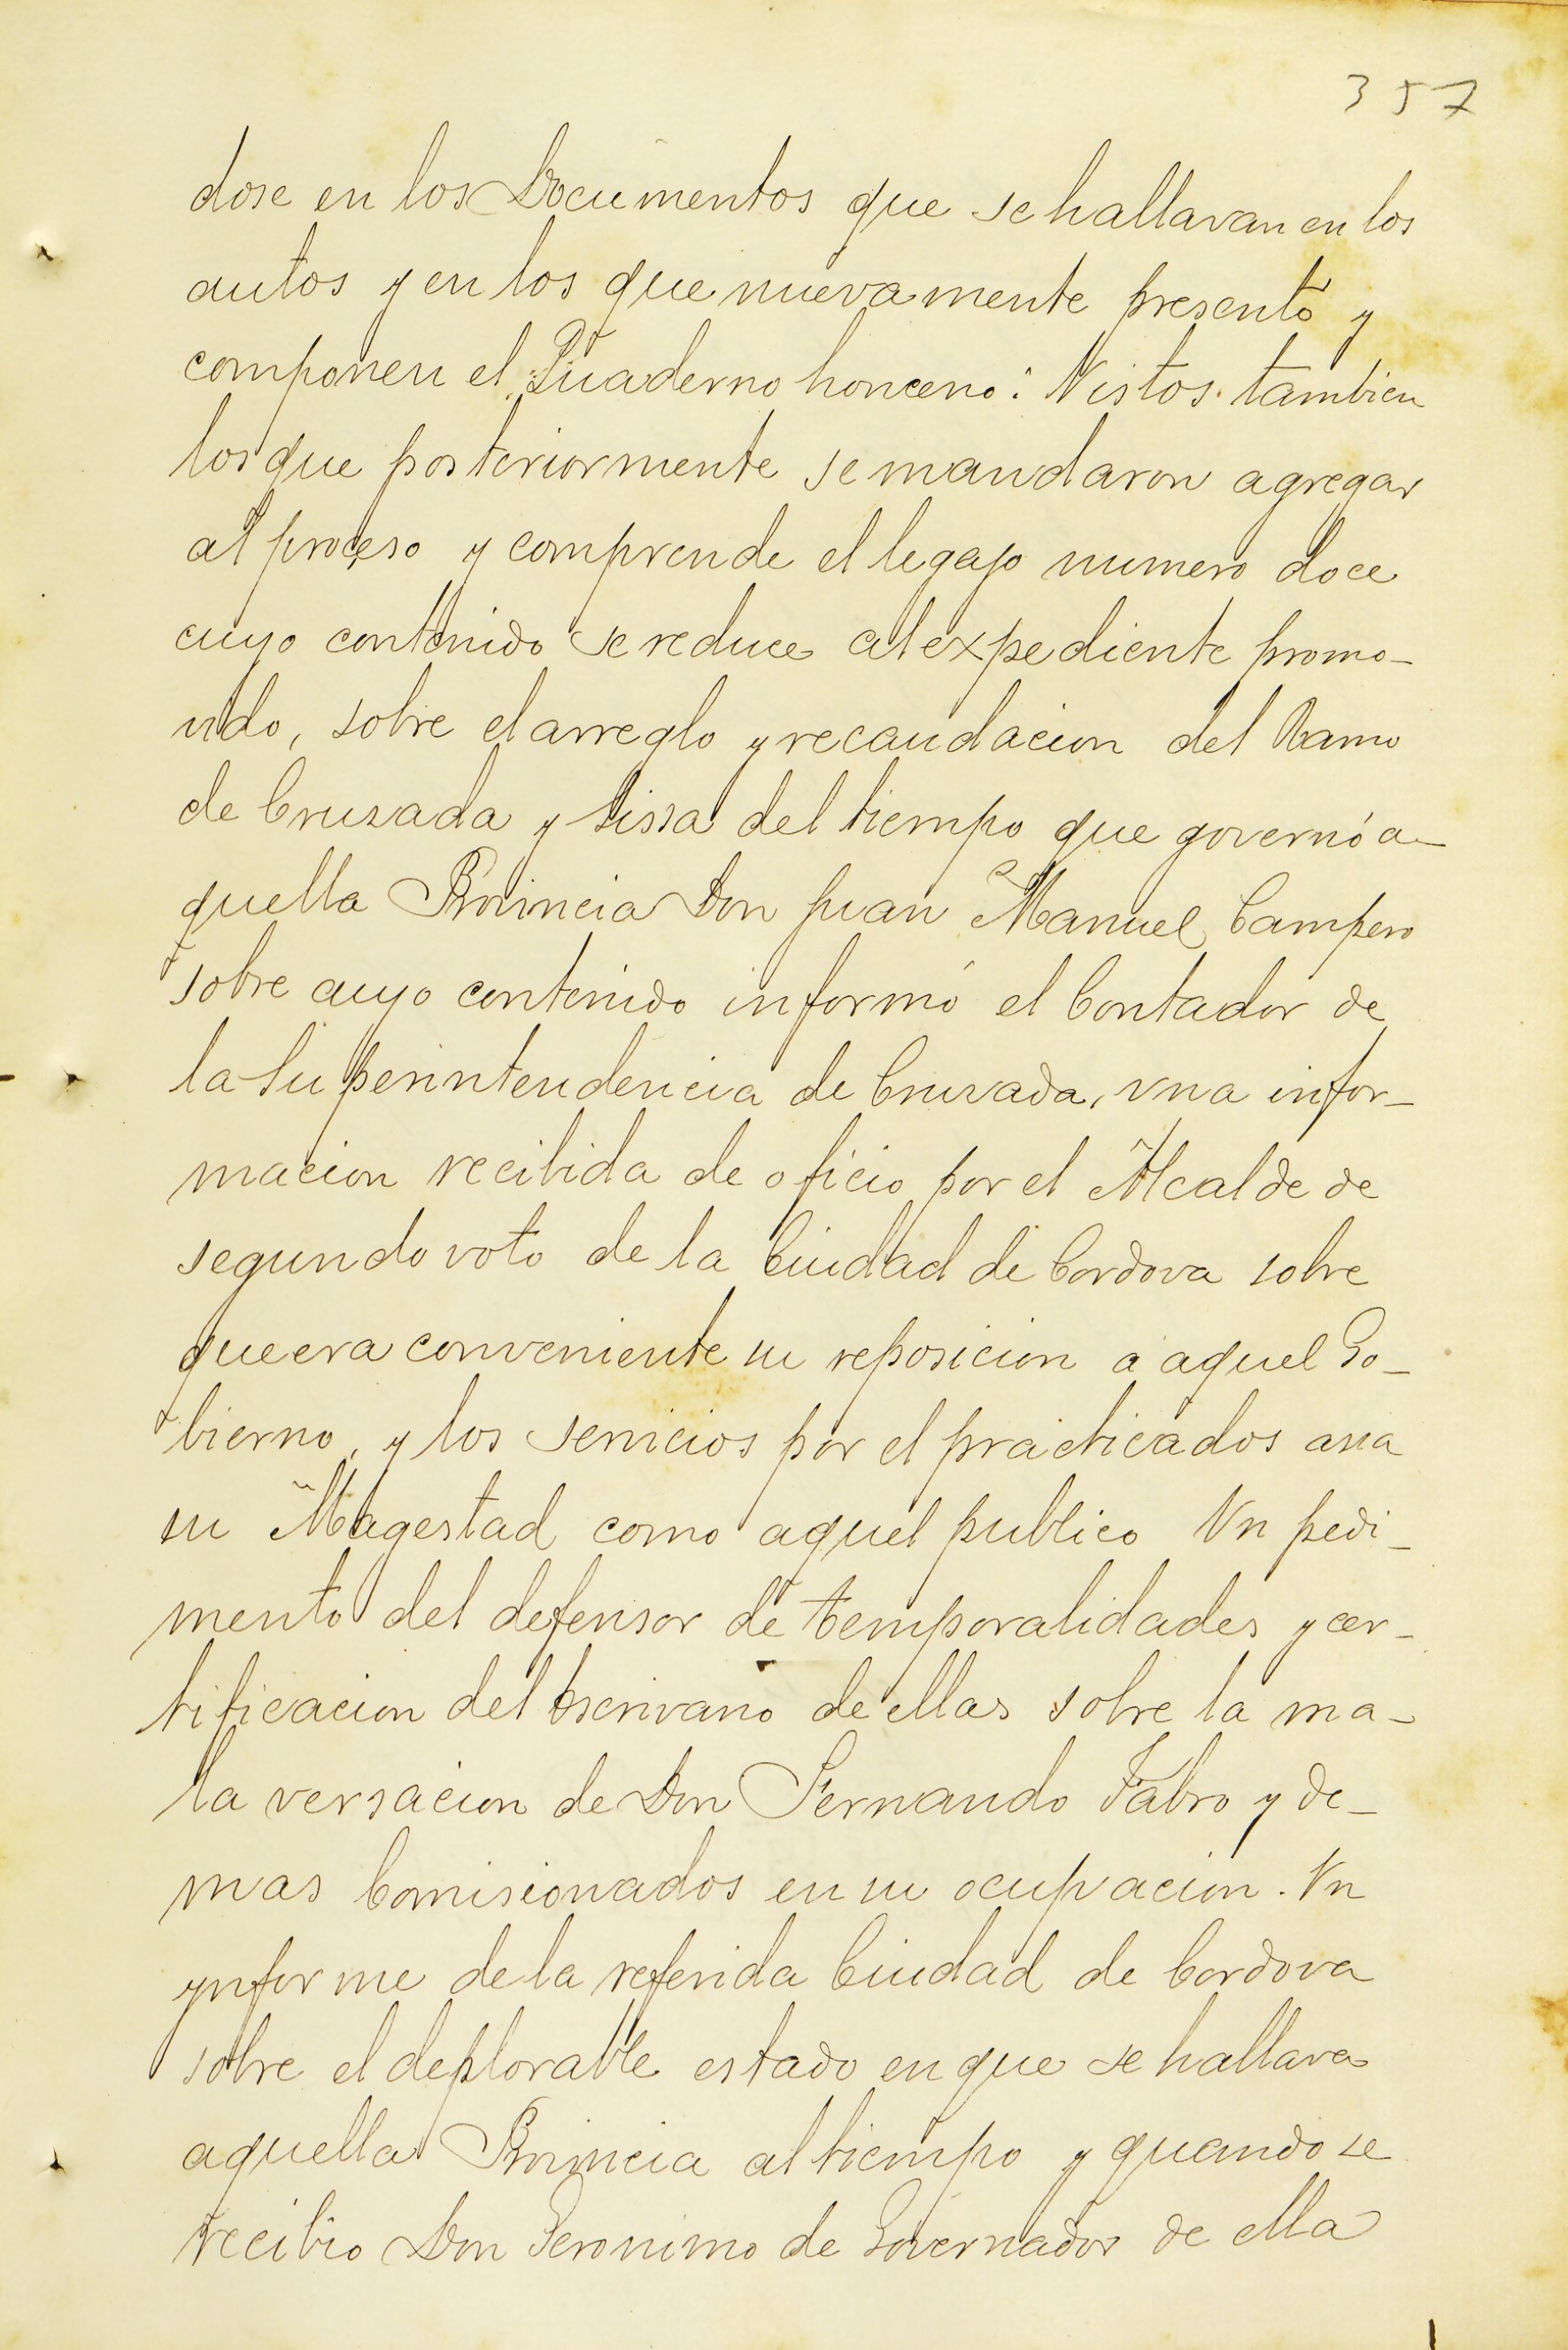 357
dose en los Documentos que se hallavan en los
autos y en los que nuevamente presentó y
componen el Quaderno honceno: Vistos tambien
los que posteriormente se mandaron agregar
al proceso y comprende el legajo numero doce
cuyo contenido se reduce al expediente promo-
vido, sobre el arreglo y recaudacion del Ramo
de Cruzada y Sissa del tiempo que governó a-
quella Provincia Don Juan Manuel Campero
sobre cuyo contenido informó el Contador de
la Superintendencia de Cruzada, vna infor-
macion recibida de oficio por el Alcalde de
segundo voto de la Ciudad de Cordova sobre
que era conveniente su reposicion a aquel Go-
bierno, y los servicios por el practicados asia
su Magestad como aquel publico Vn pedi-
mento del defensor de temporalidades y cer-
tificacion del Escrivano de ellas sobre la ma-
la versacion de Don Fernando Fabro y de-
mas Comisionados en su ocupacion. Vn
ynforme de la referida Ciudad de Cordova
sobre el deplorable estado en que se hallava
aquella Provincia al tiempo y quando se
recibio Don Geronimo de Governador de ella